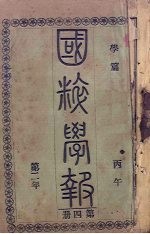 學篇
國粹學報
丙午
第二年
第四册